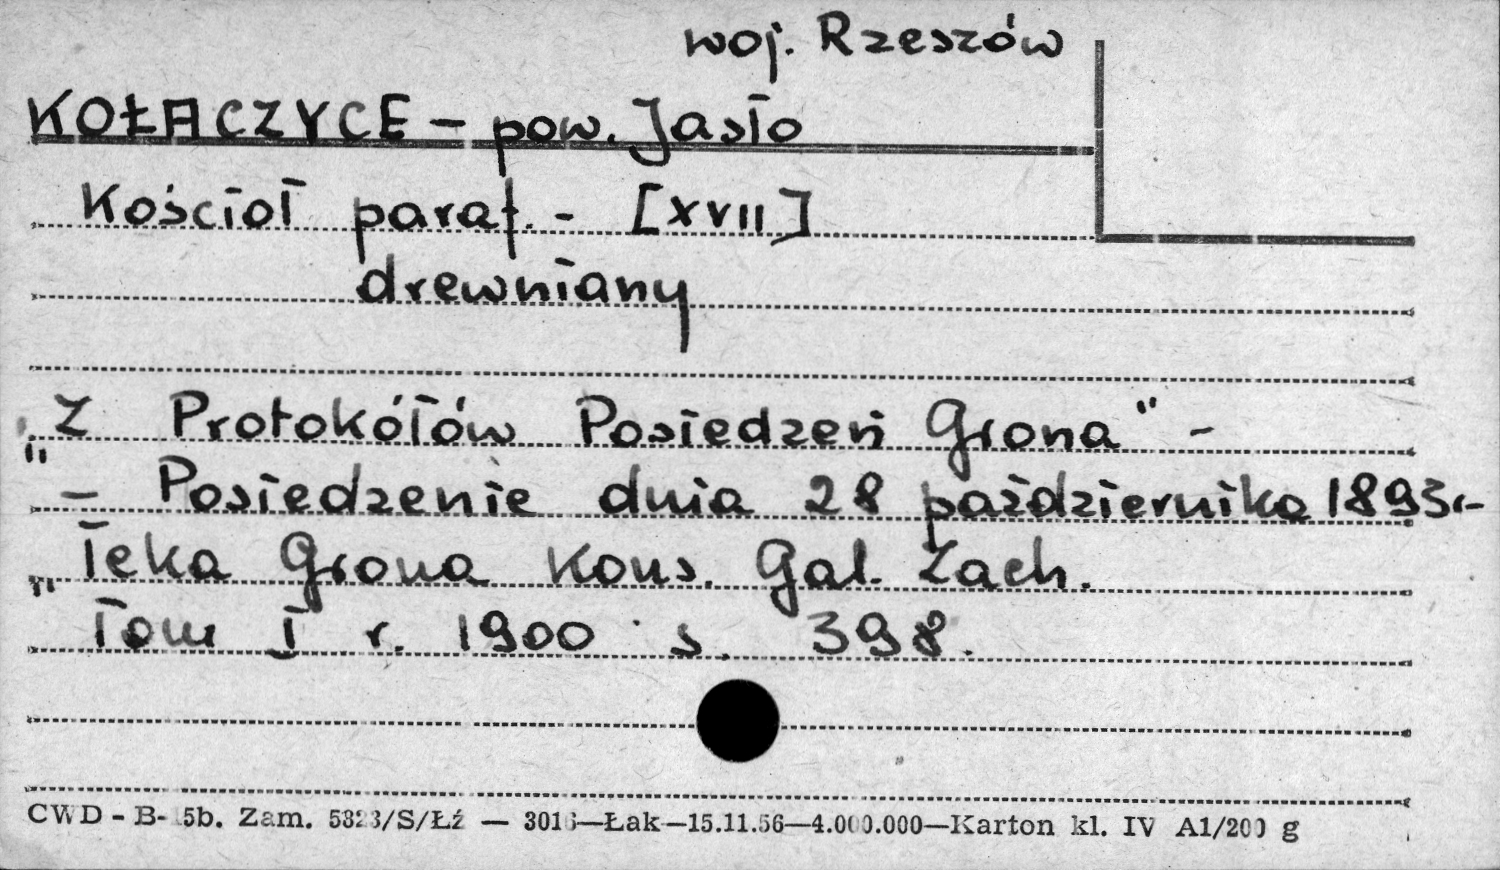 woj. Rzeszów
KOŁACZYCE - pow. Jasło
Kościoł paraf. - [XVII]
drewniany
„Z Protokółów Posiedzeń Grona" -
- Posiedzenie dnia 28 października 1893 r. -
"Teka Grona Kons. Gal. Zach.
"Tom I r. 1900 s. 398.
CWD - B- 5b. Zam. 5323/S/Łź — 3016—Łak—15.11.56—4.000.000—Karton kl. IV A1/200 g